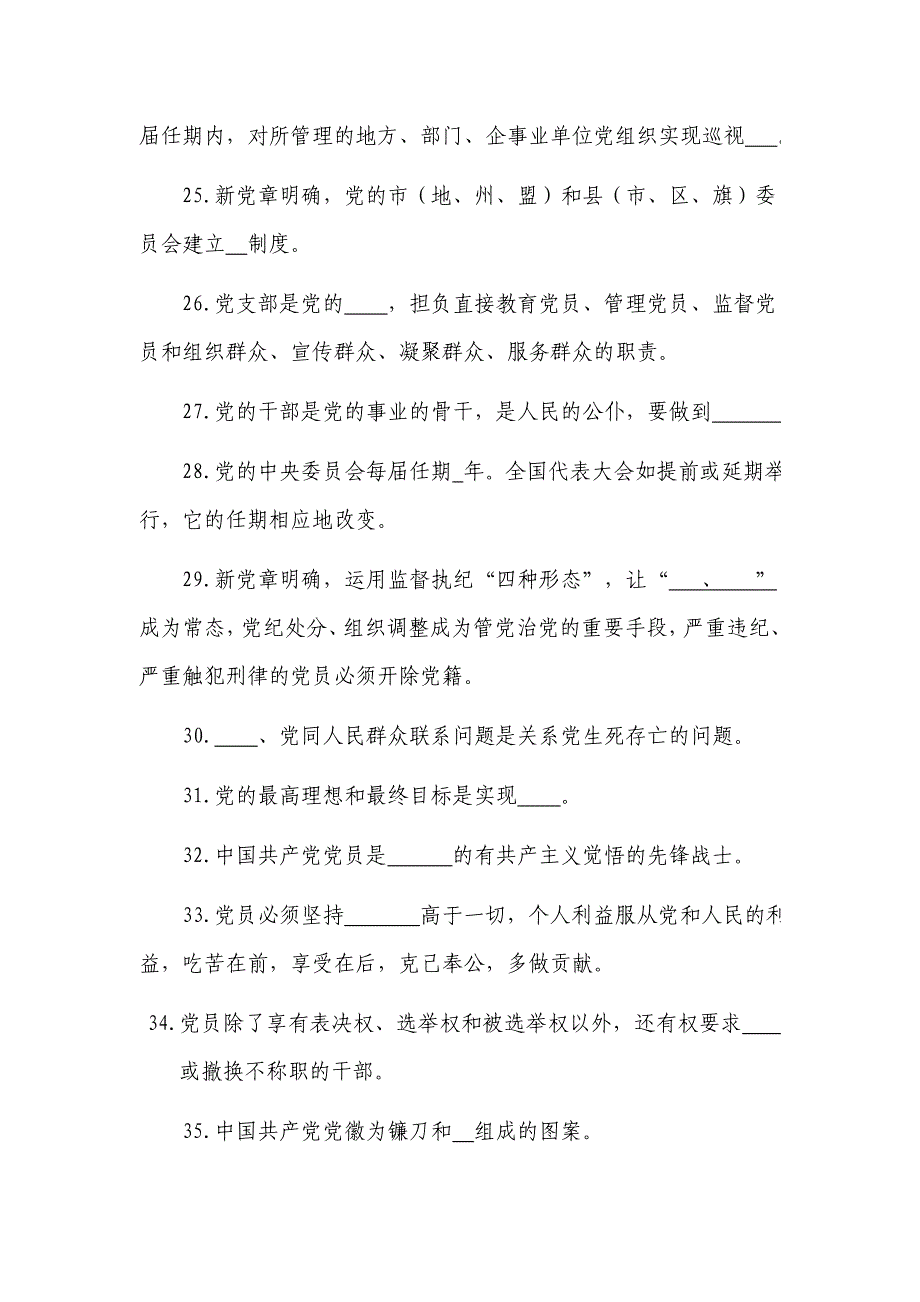 届任期内，对所管理的地方、部门、企事业单位党组织实现巡视___。
25.新党章明确，党的市（地、州、盟）和县（市、区、旗）委
员会建立__制度。
26.党支部是党的____，担负直接教育党员、管理党员、监督党
员和组织群众、宣传群众、凝聚群众、服务群众的职责。
27.党的干部是党的事业的骨干，是人民的公仆，要做到______
28.党的中央委员会每届任期_年。全国代表大会如提前或延期举
行，它的任期相应地改变。
29.新党章明确，运用监督执纪“四种形态”，让“___、___”
成为常态，党纪处分、组织调整成为管党治党的重要手段，严重违纪、
严重触犯刑律的党员必须开除党籍。
30.____、党同人民群众联系问题是关系党生死存亡的问题。
31.党的最高理想和最终目标是实现____。
32.中国共产党党员是______的有共产主义觉悟的先锋战士。
33.党员必须坚持_______高于一切，个人利益服从党和人民的利
益，吃苦在前，享受在后，克己奉公，多做贡献。
34.党员除了享有表决权、选举权和被选举权以外，还有权要求____
或撤换不称职的干部。
35.中国共产党党徽为镰刀和__组成的图案。